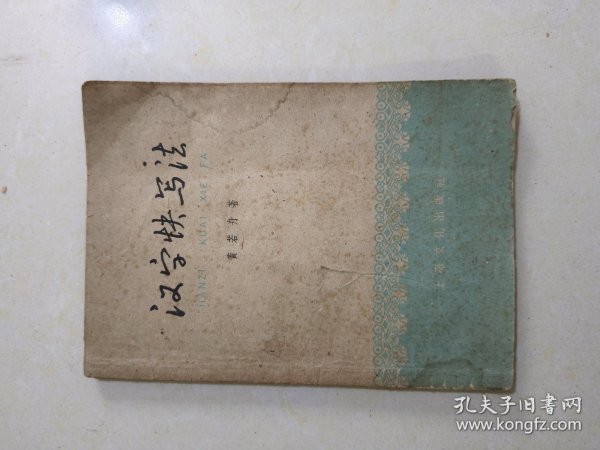 汉字快写法
HANZI KUAI XIE FA
黄若舟著
上海文化出版社
孔夫子旧书网
www.kongfz.com